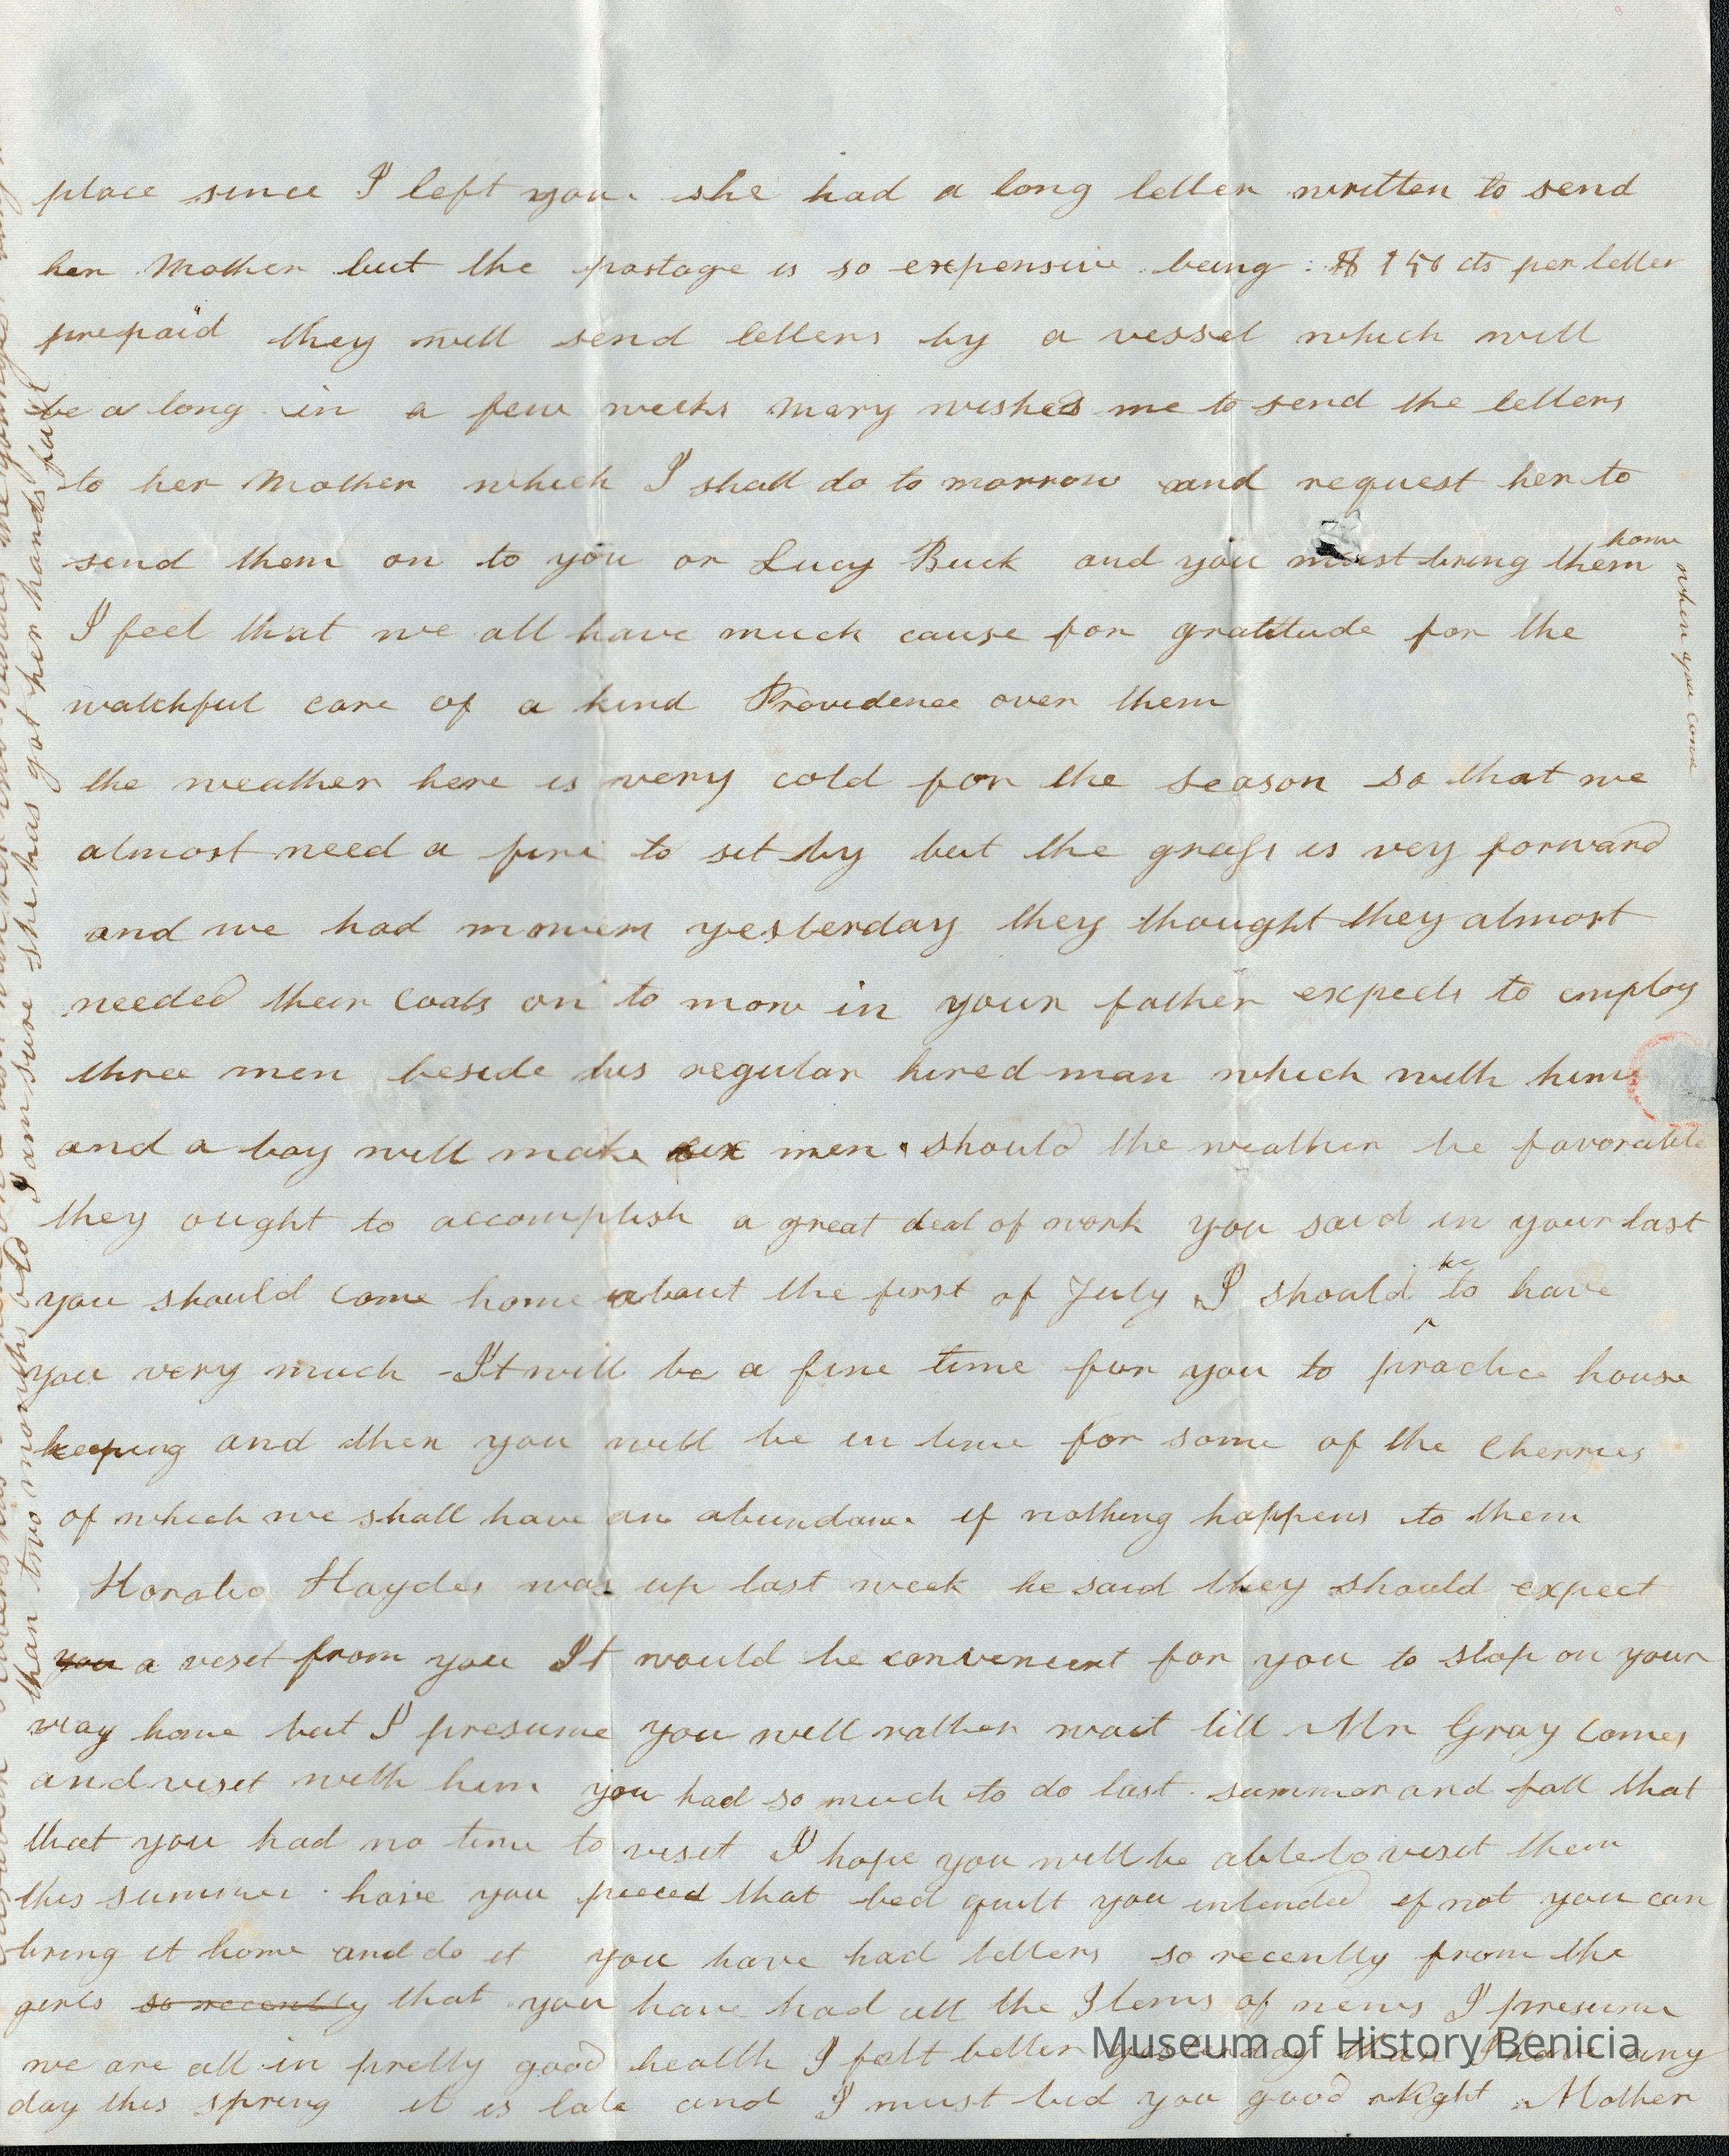 place since I left you. she had a long letter written to send
her Mother but the postage is so expensive being : $ 1 50 cts per letter
prepaid they will send letters by a vessel which will
be a long in a few weeks Mary wished me to send the letters
to her Mother which I shall do to morrow and request her to
send them on to you or Lucy Buck and you must bring them home
when you come
I feel that we all have much cause for gratitude for the
watchful care of a kind Providence over them
the weather here is very cold for the season so that we
almost need a fire to set by but the grass is very forward
and we had mowers yesterday they thought they almost
needed their Coats on to mow in your father expects to employ
three men beside his regular hired man which with him
and a boy will make six men should the weather be favorable
they ought to accomplish a great deal of work you said in your last
you should come home about the first of July I should to have
you very much - It will be a fine time for you to practice house
keeping and then you will be in time for some of the Cherries
of which we shall have an abundance if nothing happens to them
Horatio Haydes was up last week he said they should expect
you a viset from you It would be convenient for you to stop on your
way home but I presume you will rather wait till Mr Gray Comes
and viset with him you had so much to do last summer and fall that
that you had no time to viset I hope you will be able to viset them
this summer have you pieced that bed quilt you intended if not you can
bring it home and do it you have had letters so recently from the
girls so recently that you have had all the Items of news I presume
we are all in pretty good health I felt better yesterday than I have any
day this spring it is late and I must bid you good night Mother
than two months old I am sure she has got her hands full
Museum of History Benicia